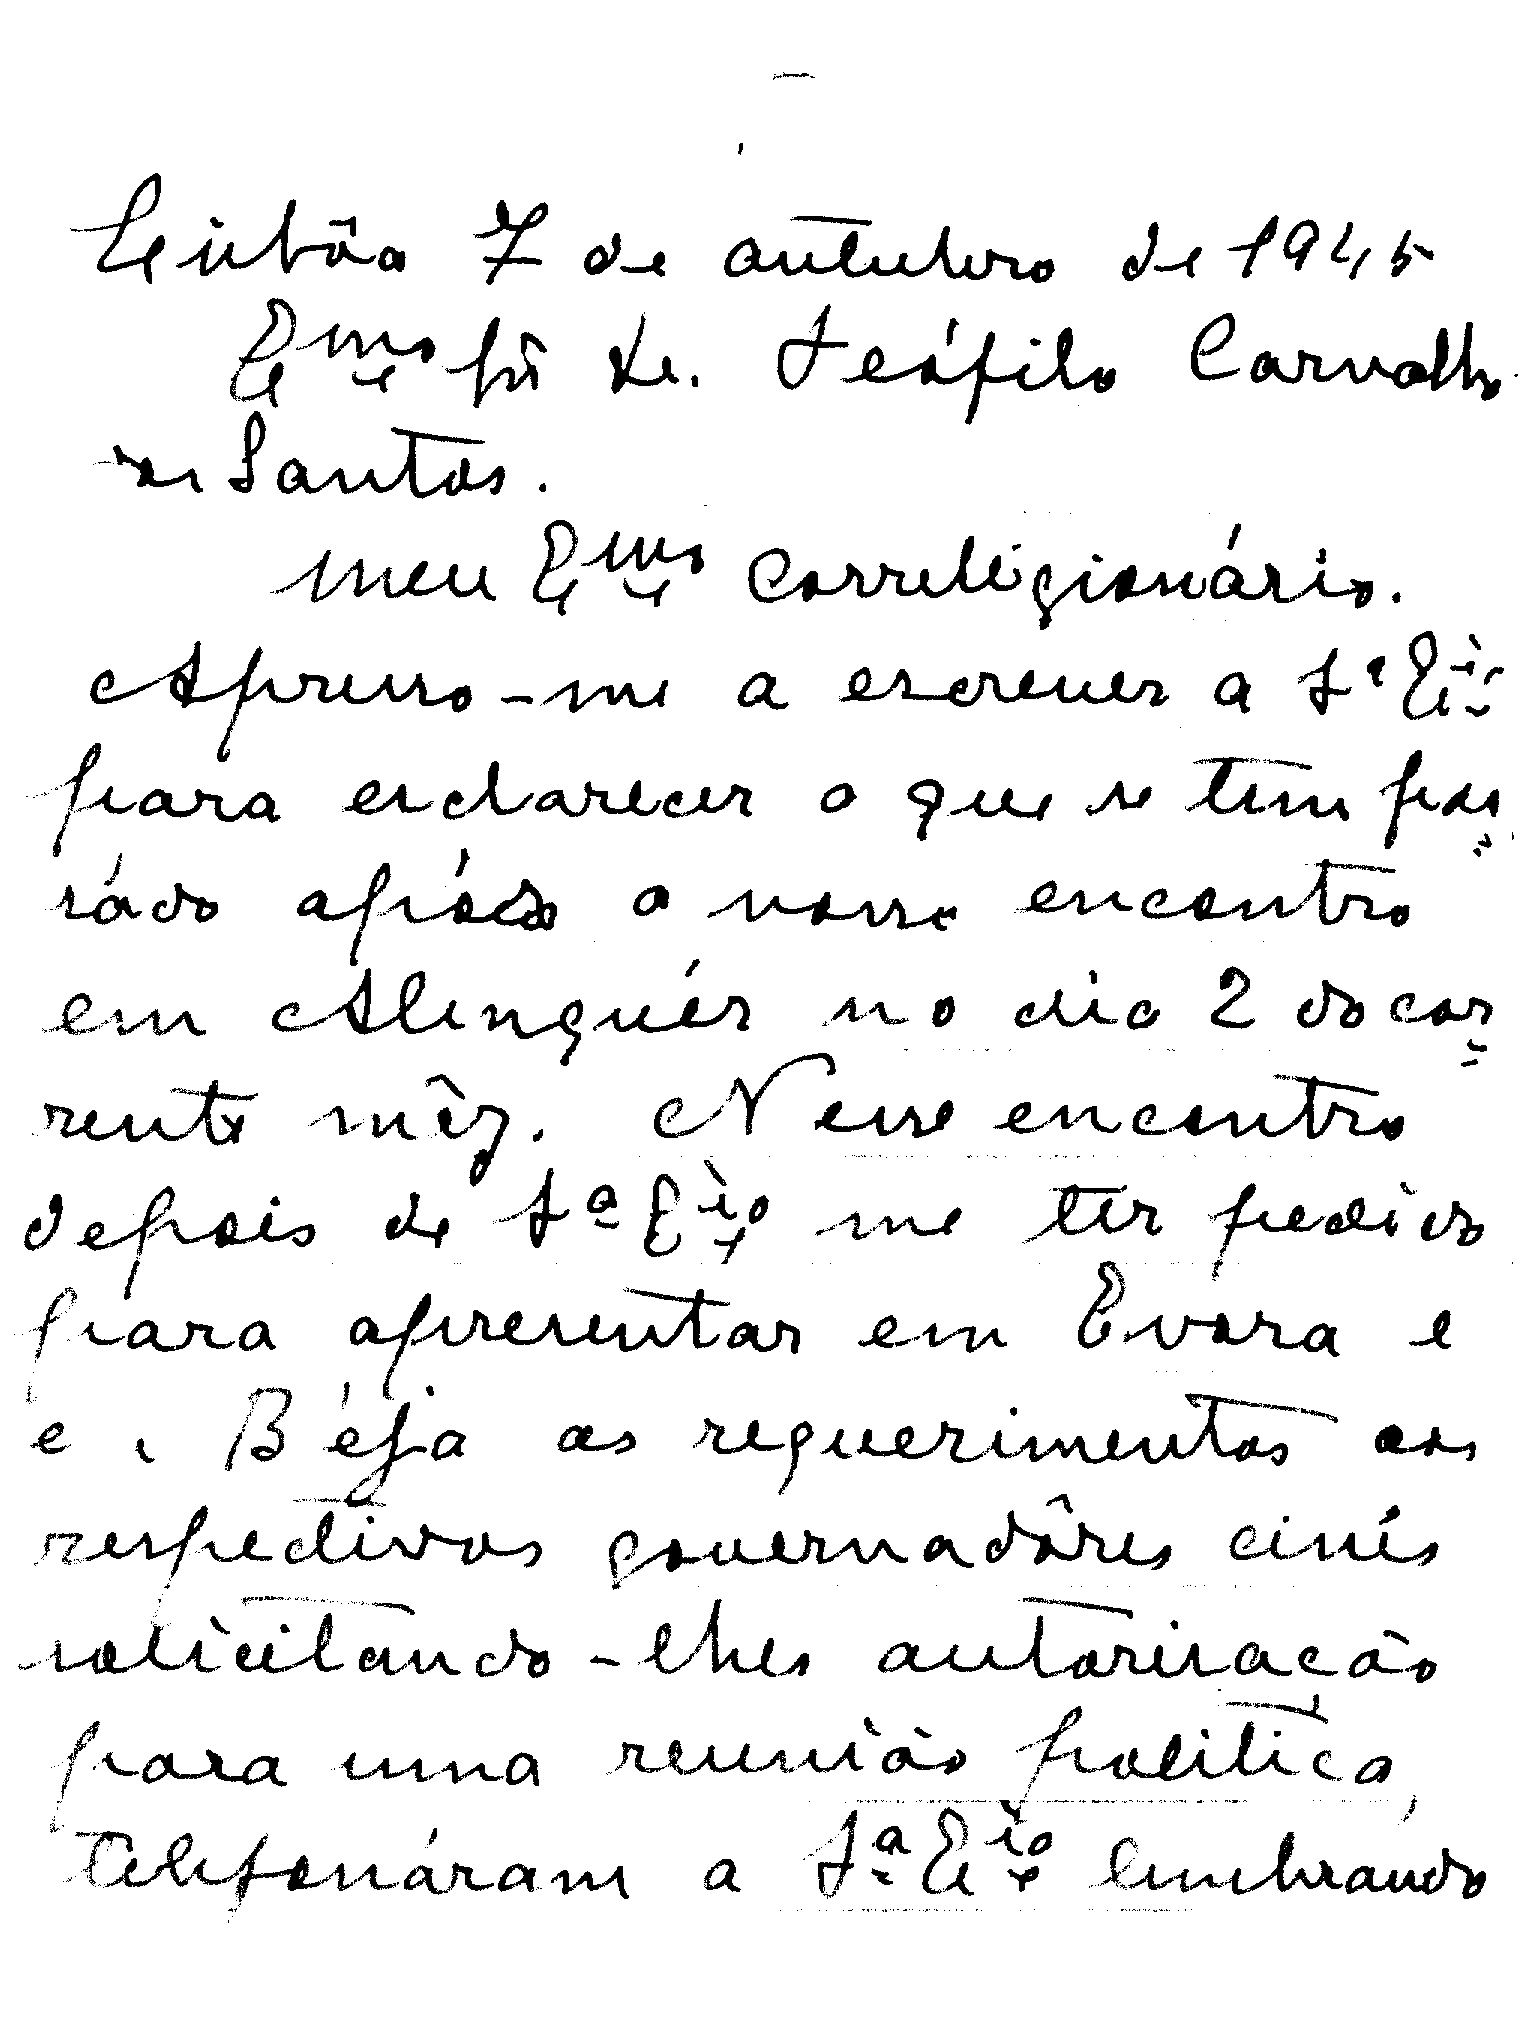 Lisbôa 7 de outubro de 1945
Exmo Sr Dr. Teófilo Carvalho
dos Santos.
Meu Exmo Correligionário.
Apresso-me a escrever a Sª Exciª
para esclarecer o que se tem pas
sádo após o nosso encontro
em Alenquér no dia 2 do cor
rente mêz. Nesse encontro
depois de Sª Exciª me ter pedido
para apresentar em Evora e
e Béja os requerimentos aos
respectivos governadôres civis
solicitando-lhes autorisacão
para uma reunião politica,
telefonáram a Sª Exciª lembrando